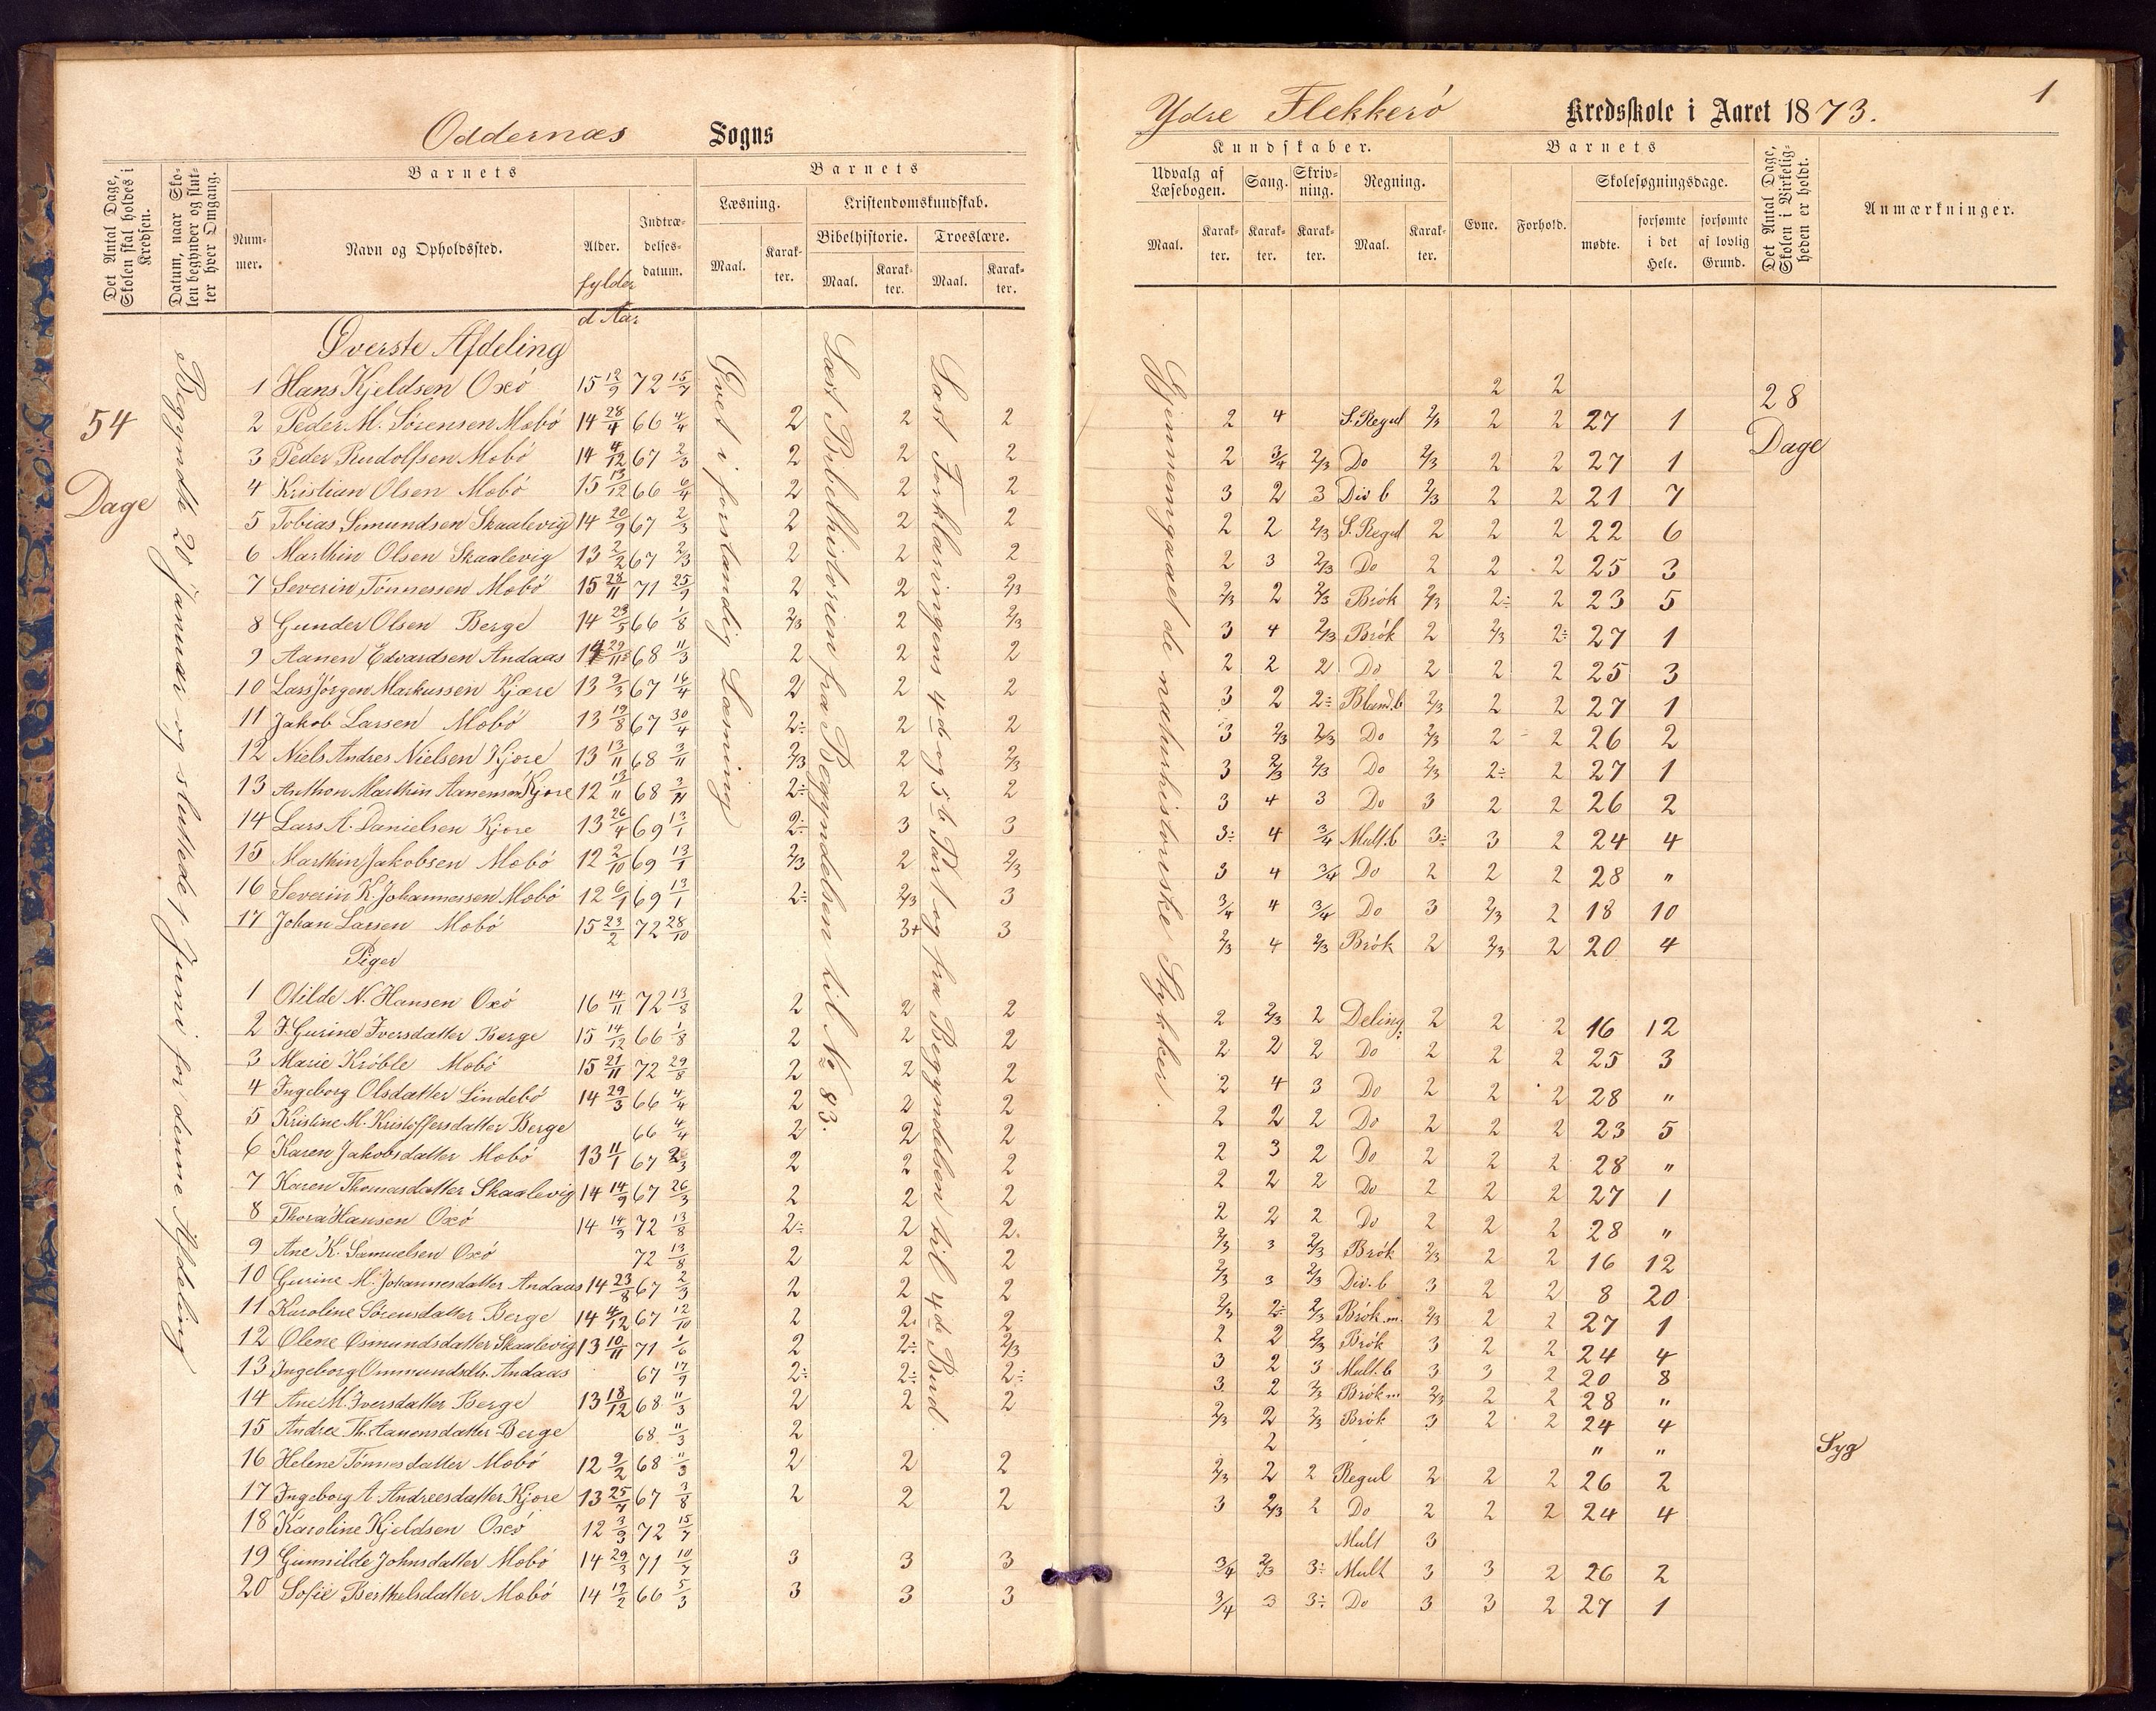 Oddernæs Sogns
Det Antal Dage, Skolen skal holdes i Kredsen.
Datum, naar Skolen begynder og slutter hver Omgang.
Barnets
Nummer.
Navn og Opholdssted.
Alder.
fylder
d Aar
Indtrædelsesdatum.
Barnets
Læsning.
Maal.
Karakter.
Kristendomskundskab.
Bibelhistorie.
Maal.
Karakter.
Troeslære.
Maal.
Karakter.
54
Dage
Begyndte 20 Januar og sluttede 1. Juni for denne Afdeling
Øvet i forstandig Læsning
Læst Bibelhistorien fra Begyndelsen til No 83.
Læst Forklaringens 4de og 5te Part og fra Begyndelsen til 4de Bud.
Øverste Afdeling
1 Hans Kjeldsen Oxö 15 12/9 72 15/7
2 Peder M. Sörensen Mæbö 14 28/4 66 4/4 2 2 2
3 Peder Rudolfsen Mæbö 14 4/12 67 2/3 2 2 2
4 Kristian Olsen Mæbö 15 13/12 66 6/4 2 2 2
5 Tobias Semundsen Skaalevig 14 20/9 67 2/3 2 2 2
6 Marthin Olsen Skaalevig 13 2/2 67 2/3 2 2 2
7 Severin Tönnessen Mæbö 15 28/11 71 25/9 2 2 2/3
8 Gunder Olsen Berge 14 29/5 66 1/8 2/3 2 2/3
9 Aanen Edvardsen Andaas 14 29/11 68 11/3 2 2 2
10 Lars Jörgen Markussen Kjære 13 9/3 67 16/4 2 2 2
11 Jakob Larsen Mæbö 13 19/8 67 30/4 2÷ 2 2
12 Niels Andres Nielsen Kjöre 13 13/11 68 3/11 2/3 2 2/3
13 Anthon Marthin Aanensen Kjöre 12 13/11 68 3/11 2÷ 2 2
14 Lars A. Danielsen Kjöre 13 26/4 69 13/1 2÷ 3 3
15 Marthin Jakobsen Mæbö 12 2/10 69 13/1 2/3 2 2/3
16 Severin K. Johannessen Mæbö 12 6/1 69 13/1 2÷ 2/3 3
17 Johan Larsen Mæbö 15 23/2 72 28/10 3+ 3
Piger
1 Otilde N. Hansen Oxö 16 14/11 72 13/8 2 2 2
2 J. Gurine Iversdatter Berge 15 14/12 66 1/8 2 2 2
3 Marie Kröble Mæbö 15 21/11 72 29/8 2 2 2
4 Ingeborg Olsdatter Lindebö 14 29/3 66 4/4 2 2 2
5 Kristine M. Kristoffersdatter Berge 66 4/4 2 2 2
6 Karen Jakobsdatter Mæbö 13 11/1 67 2/3 2 2 2
7 Karen Thomasdatter Skaalevig 14 14/9 67 26/3 2 2 2
8 Thora Hansen Oxö 14 14/9 72 13/8 2÷ 2 2
9 Ane K. Samuelsen Oxö 72 13/8 2 2 2
10 Gurine M. Johannesdatter Andaas 14 23/8 67 2/3 2 2 2
11 Karoline Sörensdatter Berge 14 4/12 67 12/10 2 2 2
12 Olene Osmundsdatter Skaalevig 13 10/11 71 1/6 2 2÷ 2/3
13 Ingeborg Ommundsdtr. Andaas 67 17/9 2÷ 2÷ 2÷
14 Ane M. Iversdatter Berge 13 18/12 68 11/3 2 2 2
15 Andrea Th. Aanensdatter Berge 68 11/3 2
16 Helene Tönnesdatter Mæbö 12 9/2 68 11/3 2 2 2
17 Ingeborg A. Andreesdatter Kjöre 13 25/7 67 3/8 2 2 2
18 Karoline Kjeldsen Oxö 12 3/3 72 15/7
19 Gunnilde Johnsdatter Mæbö 14 29/3 71 10/7 3 3 3
20 Sofie Berthelsdatter Mæbö 14 12/2 66 5/3 3 3 3
1
Ydre Flekkerö Kredsskole i Aaret 1873.
Kundskaber.
Udvalg af Læsebogen.
Maal.
Karakter.
Sang.
Karakter.
Skrivning.
Karakter.
Regning.
Maal.
Karakter.
Barnets
Evne.
Forhold.
Skolesøgningsdage.
mødte.
forsømte i det Hele.
forsømte af lovlig Grund.
Det Antal Dage, Skolen i Virkeligheden er holdt.
Anmærkninger.
Gjennemgaaet de naturhistoriske Stykker.
28
Dage
2 2
2 4 S. Regul 2/3 2 2 27 1
2 3/4 2/3 Do 2/3 2 2 27 1
3 2 3 Div b 2/3 2 2 21 7
2 2 2/3 S. Regul 2 2 2 22 6
2 3 2/3 Do 2 2 2 25 3
2/3 2 2/3 Brök 2/3 2÷ 2 23 5
3 4 2/3 Brök 2 2/3 2÷ 27 1
2 2 2 Do 2 2 2 25 3
3 2 2÷ Bland. b 2/3 2 2 27 1
3 2/3 2/3 Do 2/3 2 2 26 2
3 2/3 2/3 Do 2/3 2÷ 2 27 1
3 4 3 Do 3 2 2 26 2
3÷ 4 3/4 Mult. b 3÷ 3 2 24 4
3 4 3/4 Do 2 2 2 28 "
3/4 4 3/4 Do 3 2/3 2 18 10
2/3 4 2/3 Brök 2 2/3 2 20 4
2 2/3 2 Deling 2 2 2 16 12
2 2 2 Do 2 2 2 25 3
2 4 3 Do 2 2 2 28 "
2 2 2 Do 2 2 2 23 5
2 3 2 Do 2 2 2 28 "
2 2 2 Do 2 2 2 27 1
2 2 2 Do 2 2 2 28 "
2/3 3 2/3 Brök 2/3 2 2 16 12
2/3 3 2/3 Div. b 3 2 2 8 20
2/3 2÷ 2/3 Brök m. 2/3 2 2 27 1
2 2 2/3 Brök 3 2 2 24 4
3 2 3 Mult. b 3 3 2 20 8
3 2 2/3 Brök m 2/3 2 2 28 "
2/3 2 2/3 Brök 3 2 2 24 4
2 " " Syg
2/3 2 2 Regul 2 2 2 26 2
3 2/3 2 Do 2 2 2 24 4
Mult 3
3/4 2/3 3÷ Mult 3 3 2 26 2
3/4 3 3÷ Do 3 3 2 27 1